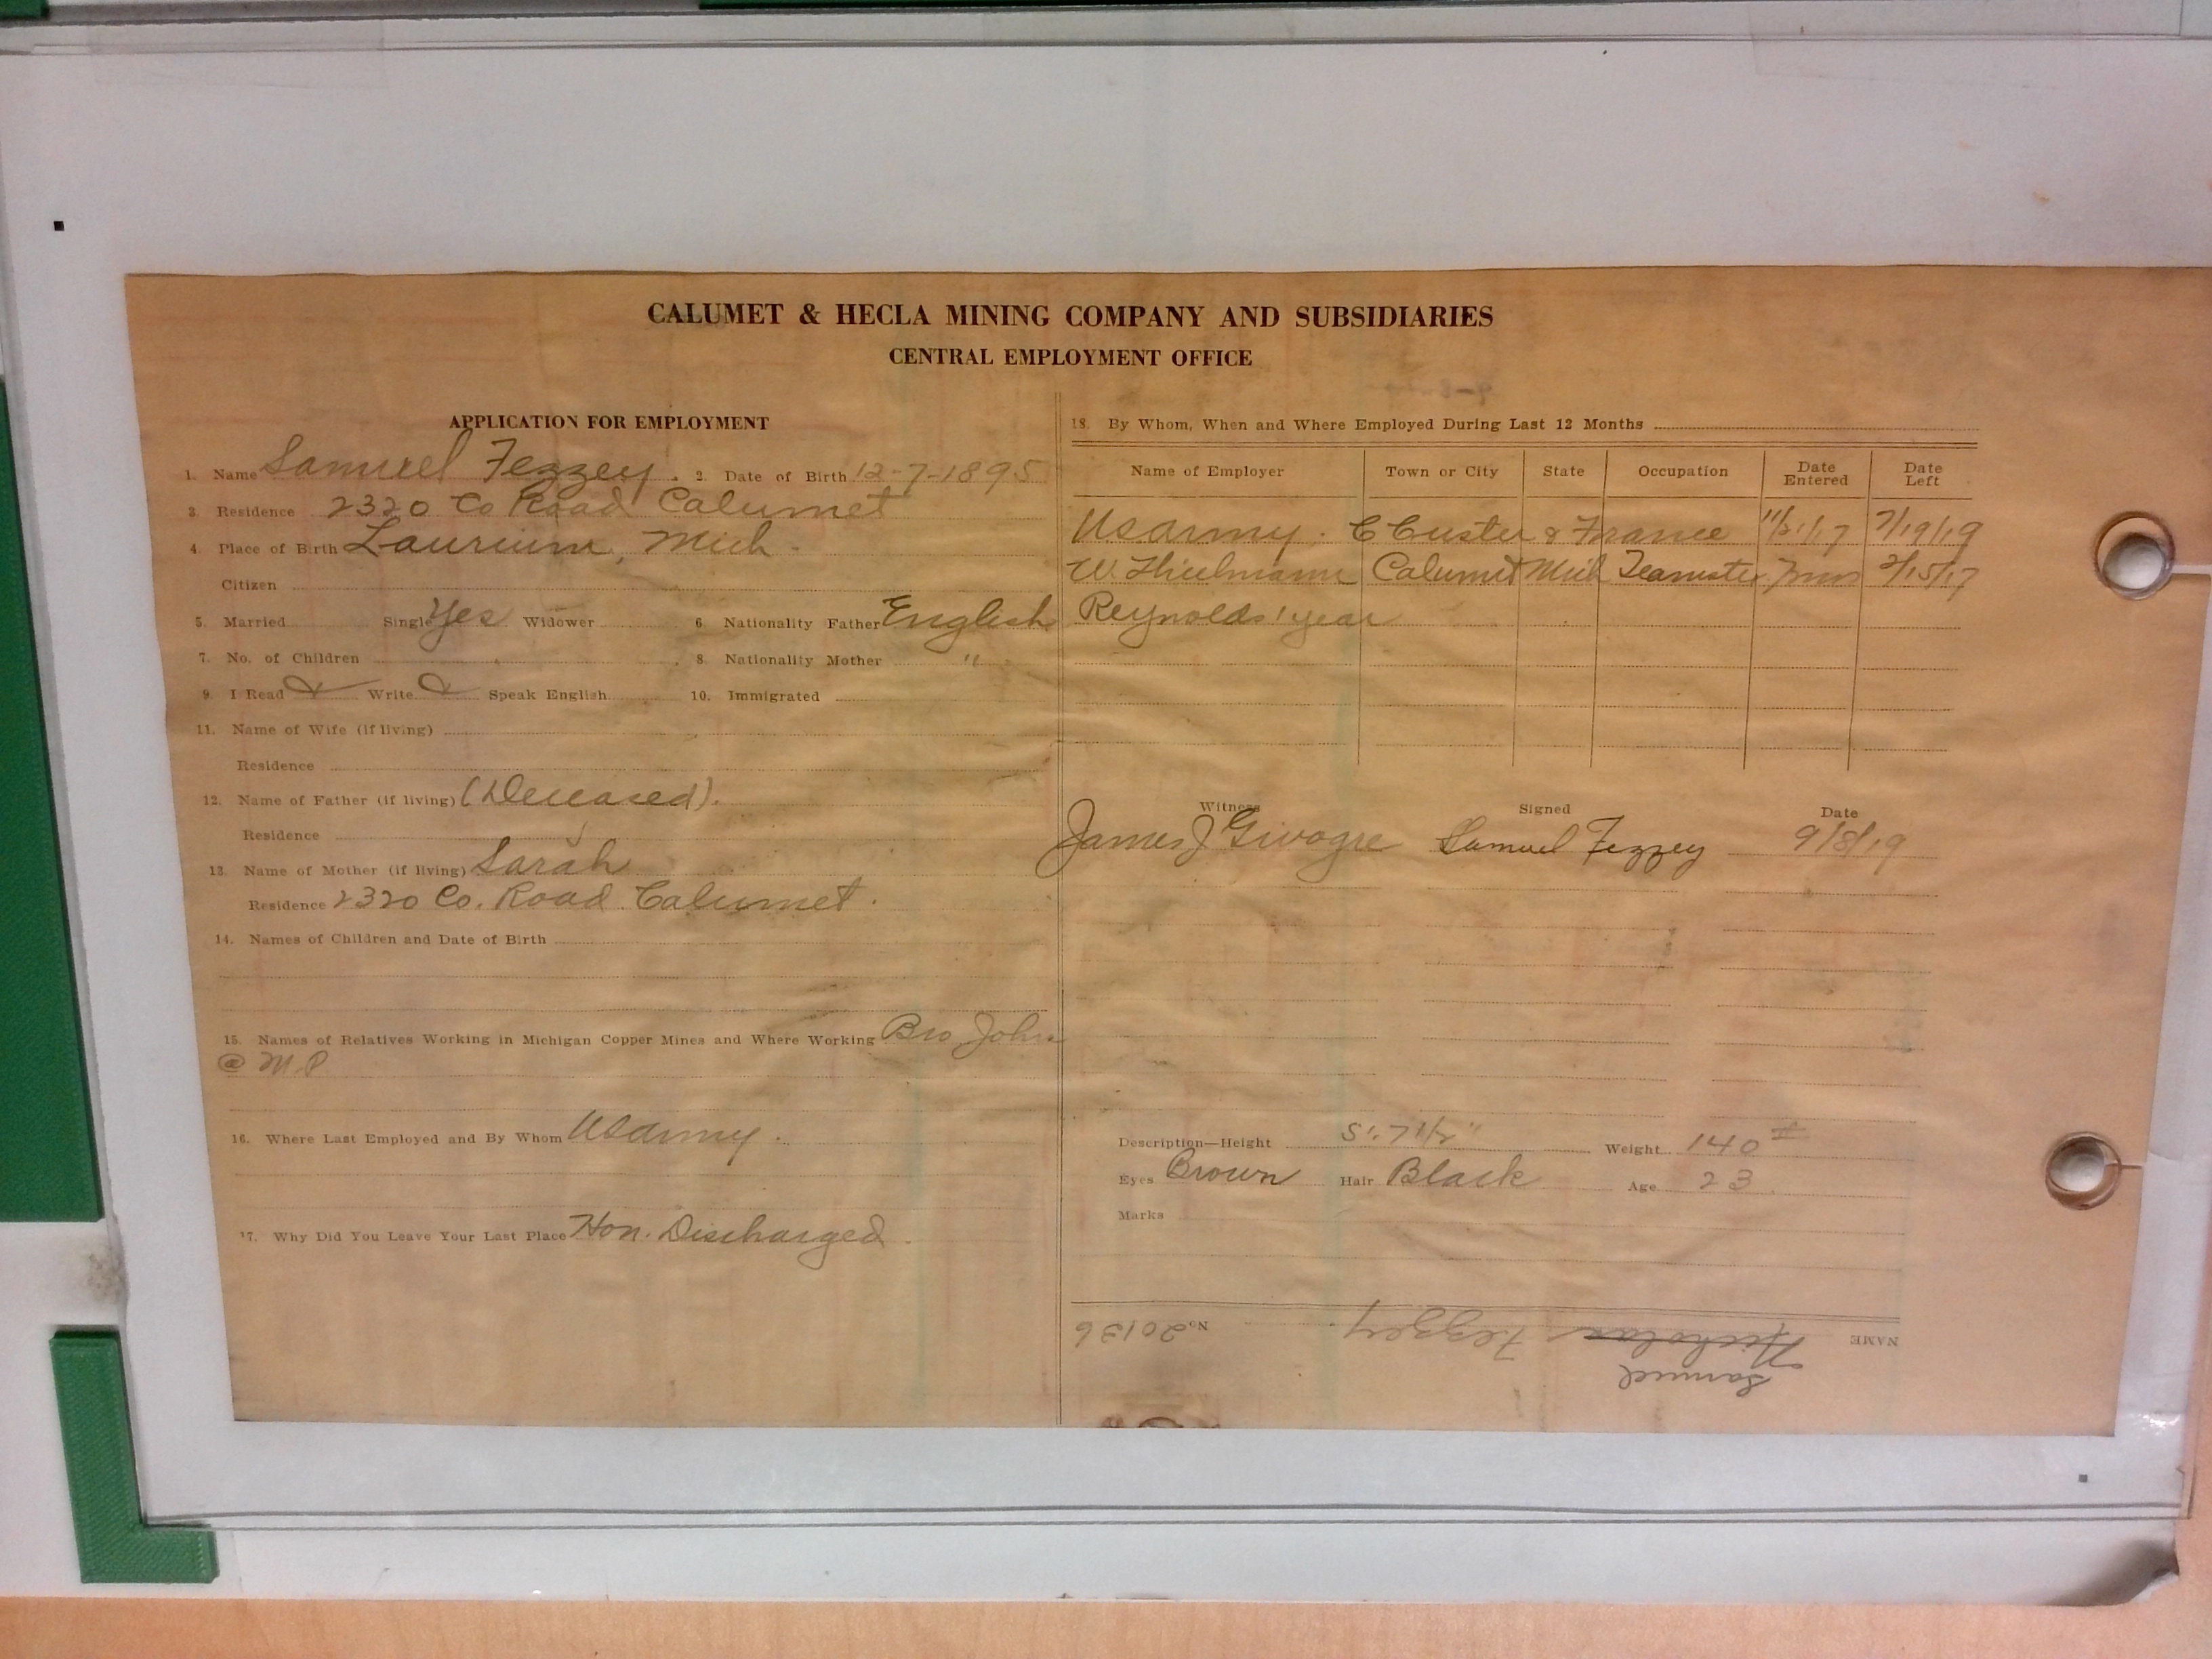 CALUMET & HECLA MINING COMPANY AND SUBSIDIARIES
CENTRAL EMPLOYMENT OFFICE
APPLICATION FOR EMPLOYMENT
1. Name Samuel Fezzey. 2. Date of Birth 12-7-1895
3. Residence 2320 Co Road Calumet
4. Place of Birth Laurium, Mich.
Citizen
5. Married Single Yes Widower 6. Nationality Father English
7. No. of Children 8. Nationality Mother "
9. I Read Write Speak English 10. Immigrated
11. Name of Wife (if living)
Residence
12. Name of Father (if living) (Deceased).
Residence
13. Name of Mother (if living) Sarah
Residence 2320 Co. Road Calumet.
14. Names of Children and Date of Birth
15. Names of Relatives Working in Michigan Copper Mines and Where Working Bro John
@ M.P
16. Where Last Employed and By Whom US Army.
17. Why Did You Leave Your Last Place Hon. Discharged.
18. By Whom, When and Where Employed During Last 12 Months
Name of Employer Town or City State Occupation Date Entered Date Left
US Army. C Custer & France 7/19/19
W. Calumet Mich Teamster 17
Reynolds 1 year
Witness Signed Date
James J Samuel Fezzey 9/8/19
Description—Height 5' 7 1/2" Weight 140 #
Eyes Brown Hair Black Age 23
Marks
NAME Nicholas Fezzey. No. 20136
Samuel